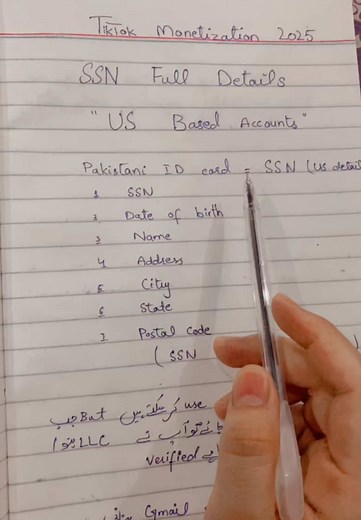 TikTok Monetization 2025
SSN Full Details
"US Based Accounts"
Pakistani ID card = SSN (US detail
1 SSN
2 Date of birth
3 Name
4 Address
5 City
6 State
7 Postal code
( SSN
use کر سکتے ہیں But جب
جائے تو آپ نے LLC بنوا
verified
Gmail